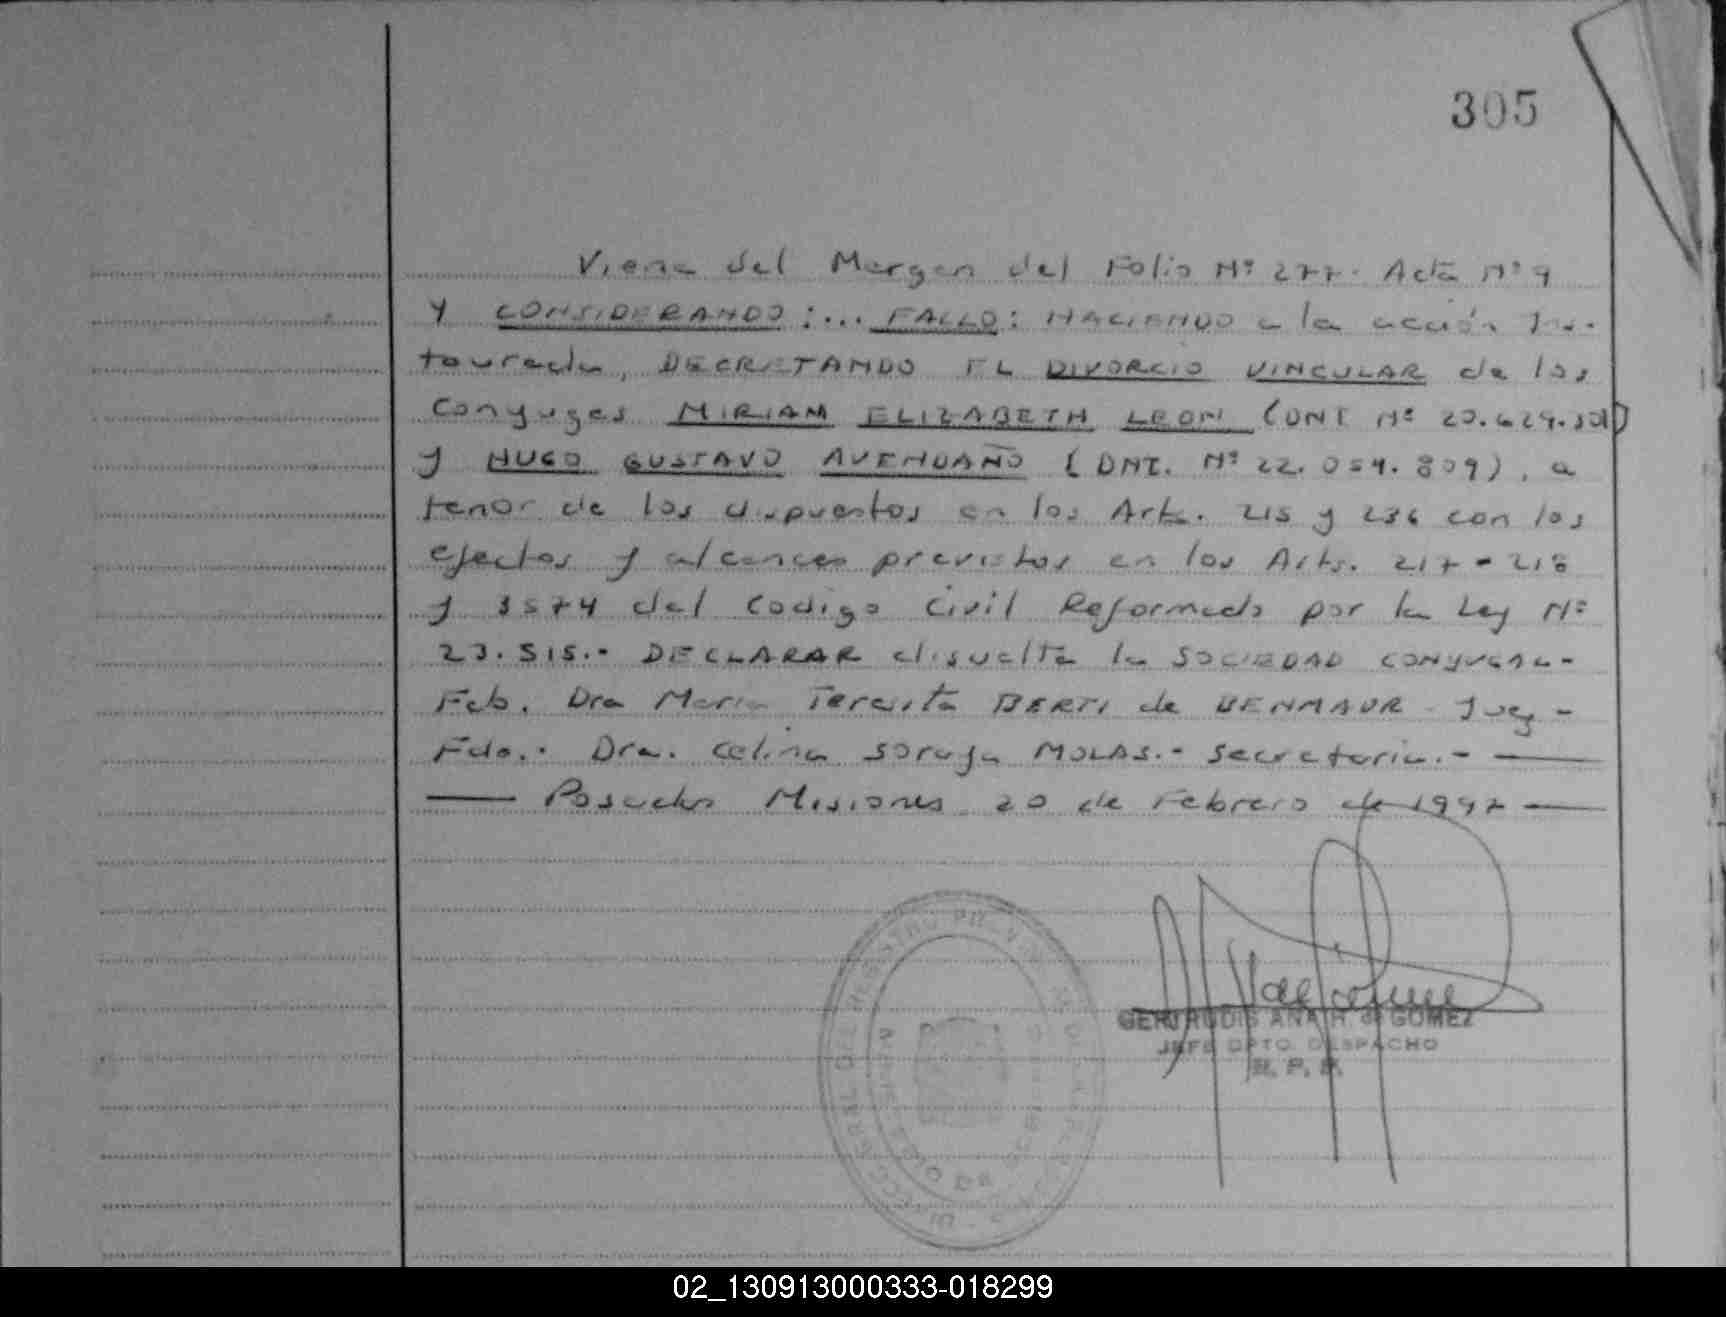 305
Viene del Margen del Folio Nº 277. Acta Nº 9
y CONSIDERANDO:... FALLO: HACIENDO a la acción Ins-
taurada, DECRETANDO EL DIVORCIO VINCULAR de los
Conyuges MIRIAM ELIZABETH LEON (DNI Nº
y HUGO GUSTAVO AVENDAÑO (DNI. Nº 22.054.809), a
tenor de los dispuestos en los Arts. 215 y 236 con los
efectos y alcances previstos en los Arts. 217 - 218
y 3574 del Codigo Civil Reformado por la Ley Nº
23.515.- DECLARAR disuelta la SOCIEDAD CONYUGAL-
Fdo. Dra Maria Teresita BERTI de BENMAOR - Juez -
Fdo.- Dra. Celina Soraya MOLAS.- Secretaria.-
Posadas Misiones 20 de Febrero de 1997
GERTRUDIS ANA H. de GOMEZ
JEFE DPTO. DESPACHO
R. P. P.
02_130913000333-018299